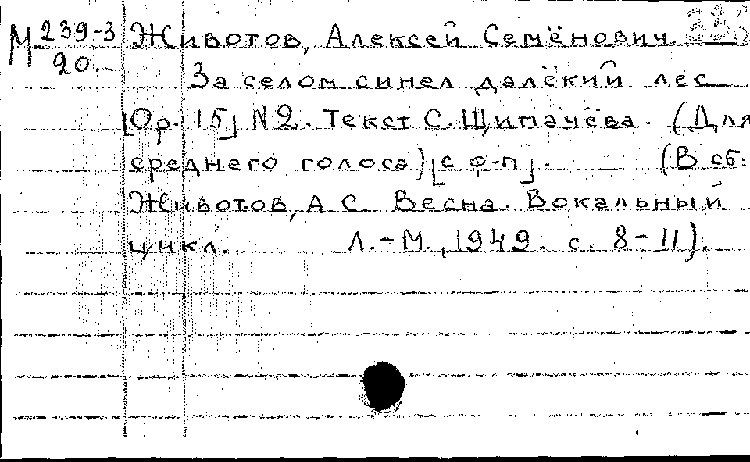 М 239-3
20
Животов, Алексей Семёнович
За селом синел далёкий лес
[Ор. 15] №2. Текст С. Щипачёва. (Для
среднего голоса) [с ф-п]. (В сб:
Животов, А С. Весна. Вокальный
цикл. Л.-М., 1949. с. 8-11).